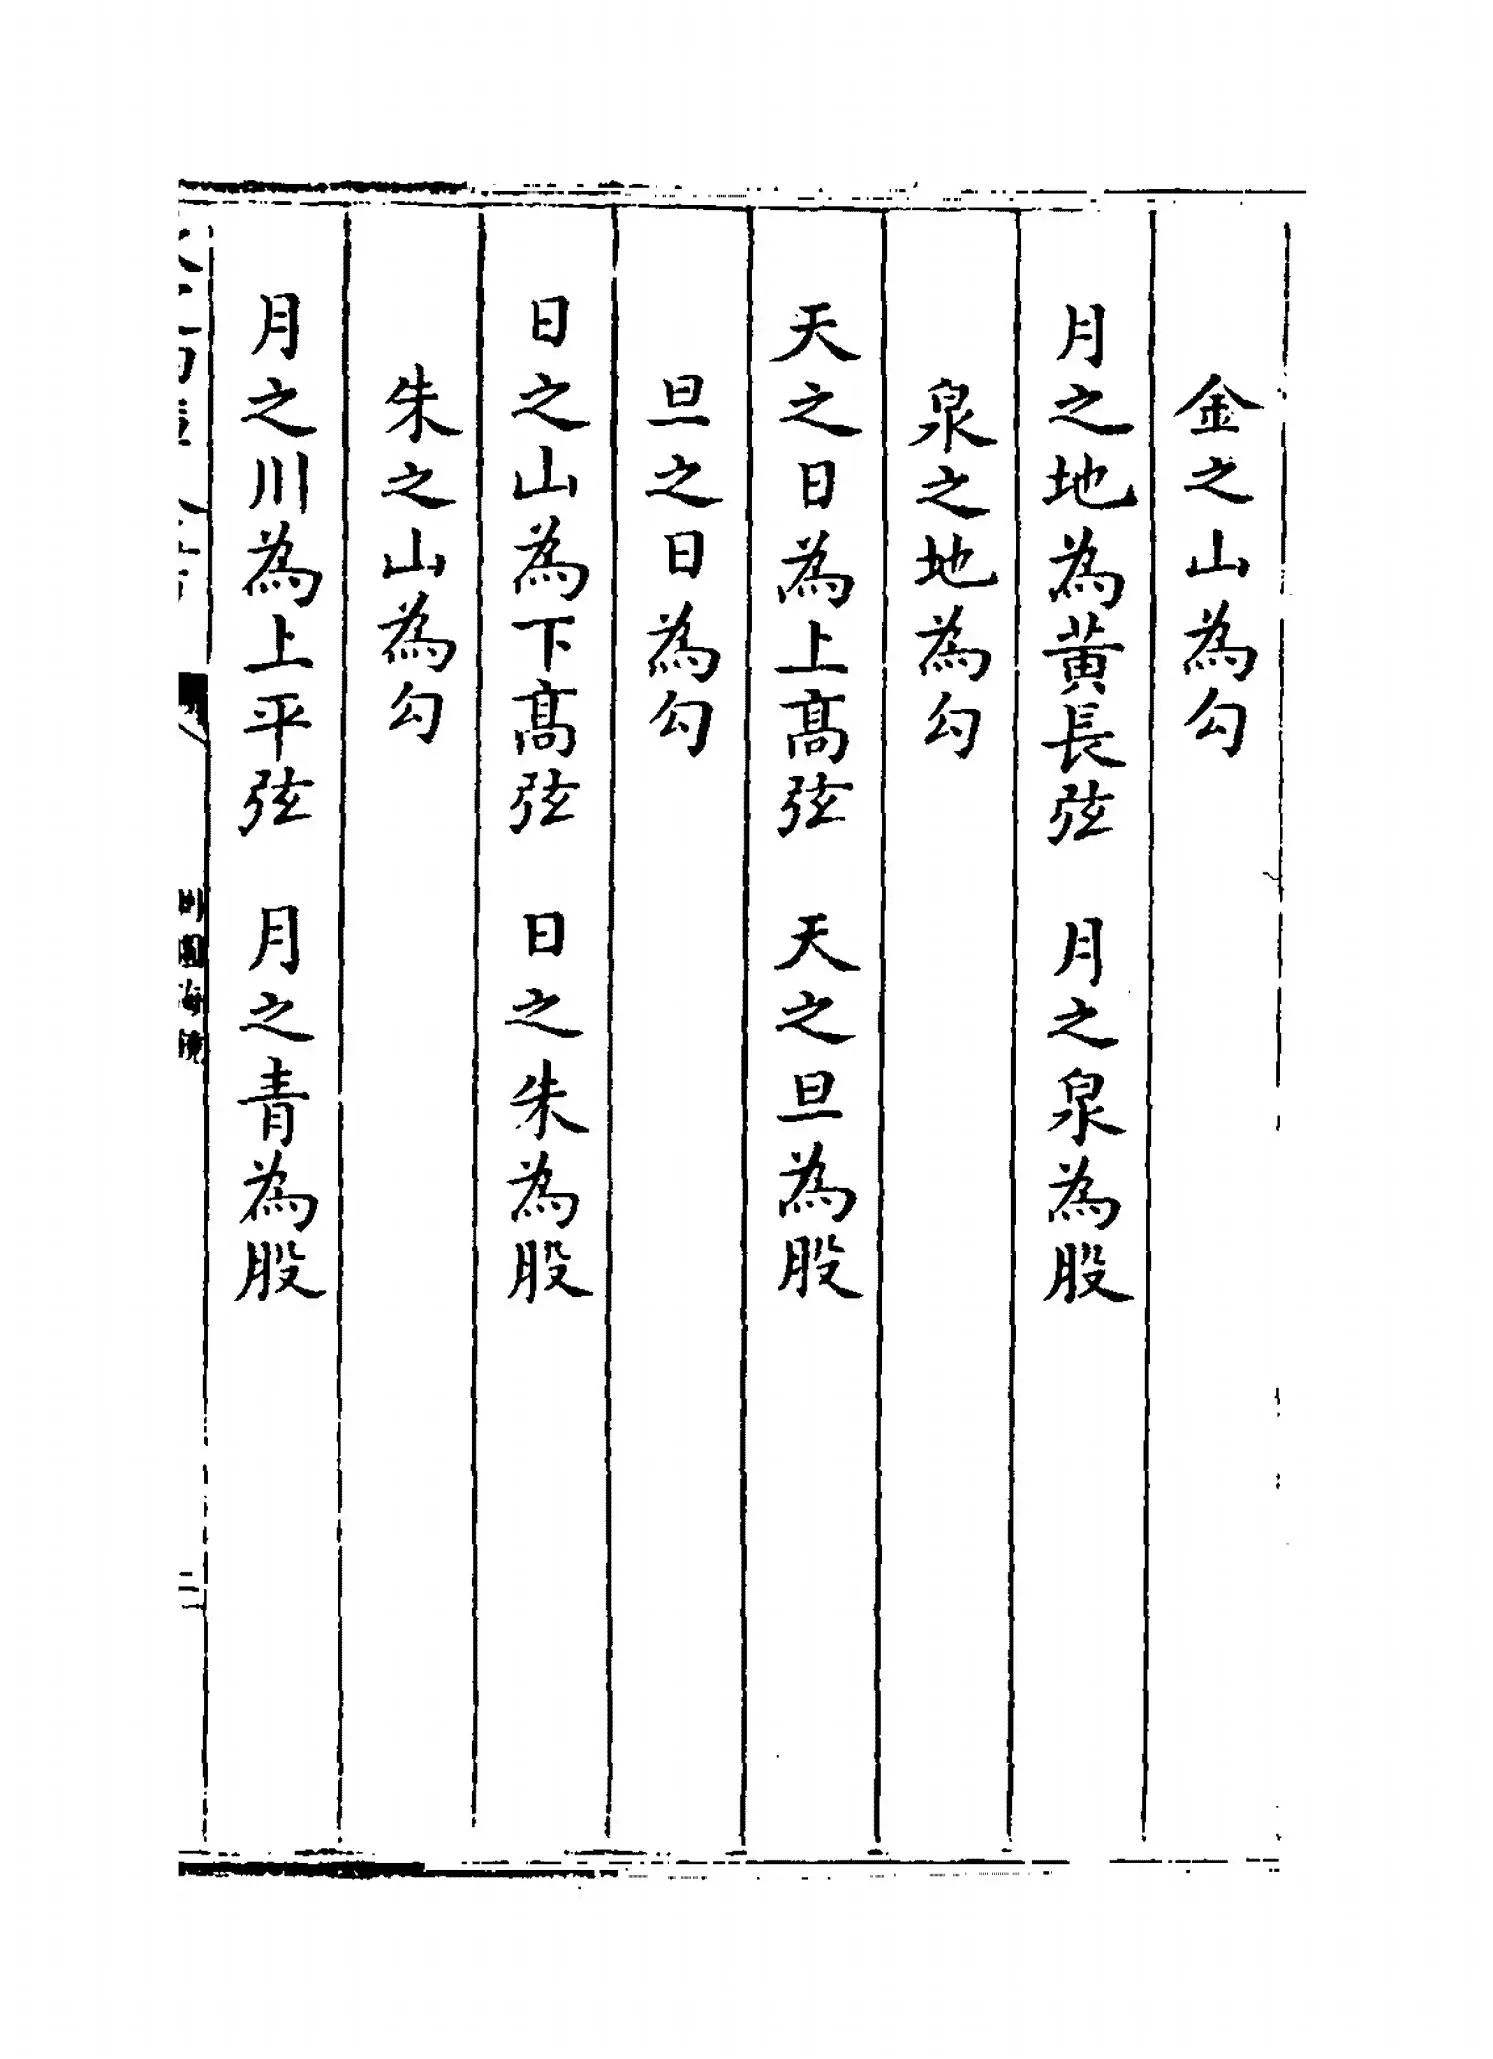 金之山為勾
月之地為黄長弦　月之泉為股
泉之地為勾
天之日為上髙弦　天之旦為股
旦之日為勾
日之山為下髙弦　日之朱為股
朱之山為勾
月之川為上平弦　月之青為股